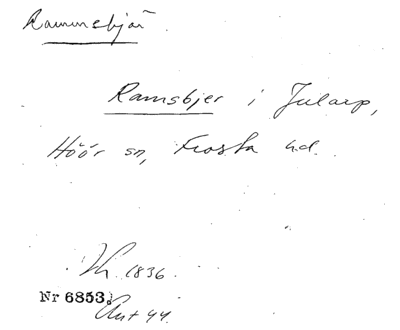 Rammebjär
Ramsbjer i Jularp,
Höör sn, Frosta hd.
Vh. 1836.
Nr 6853.
Ant 44